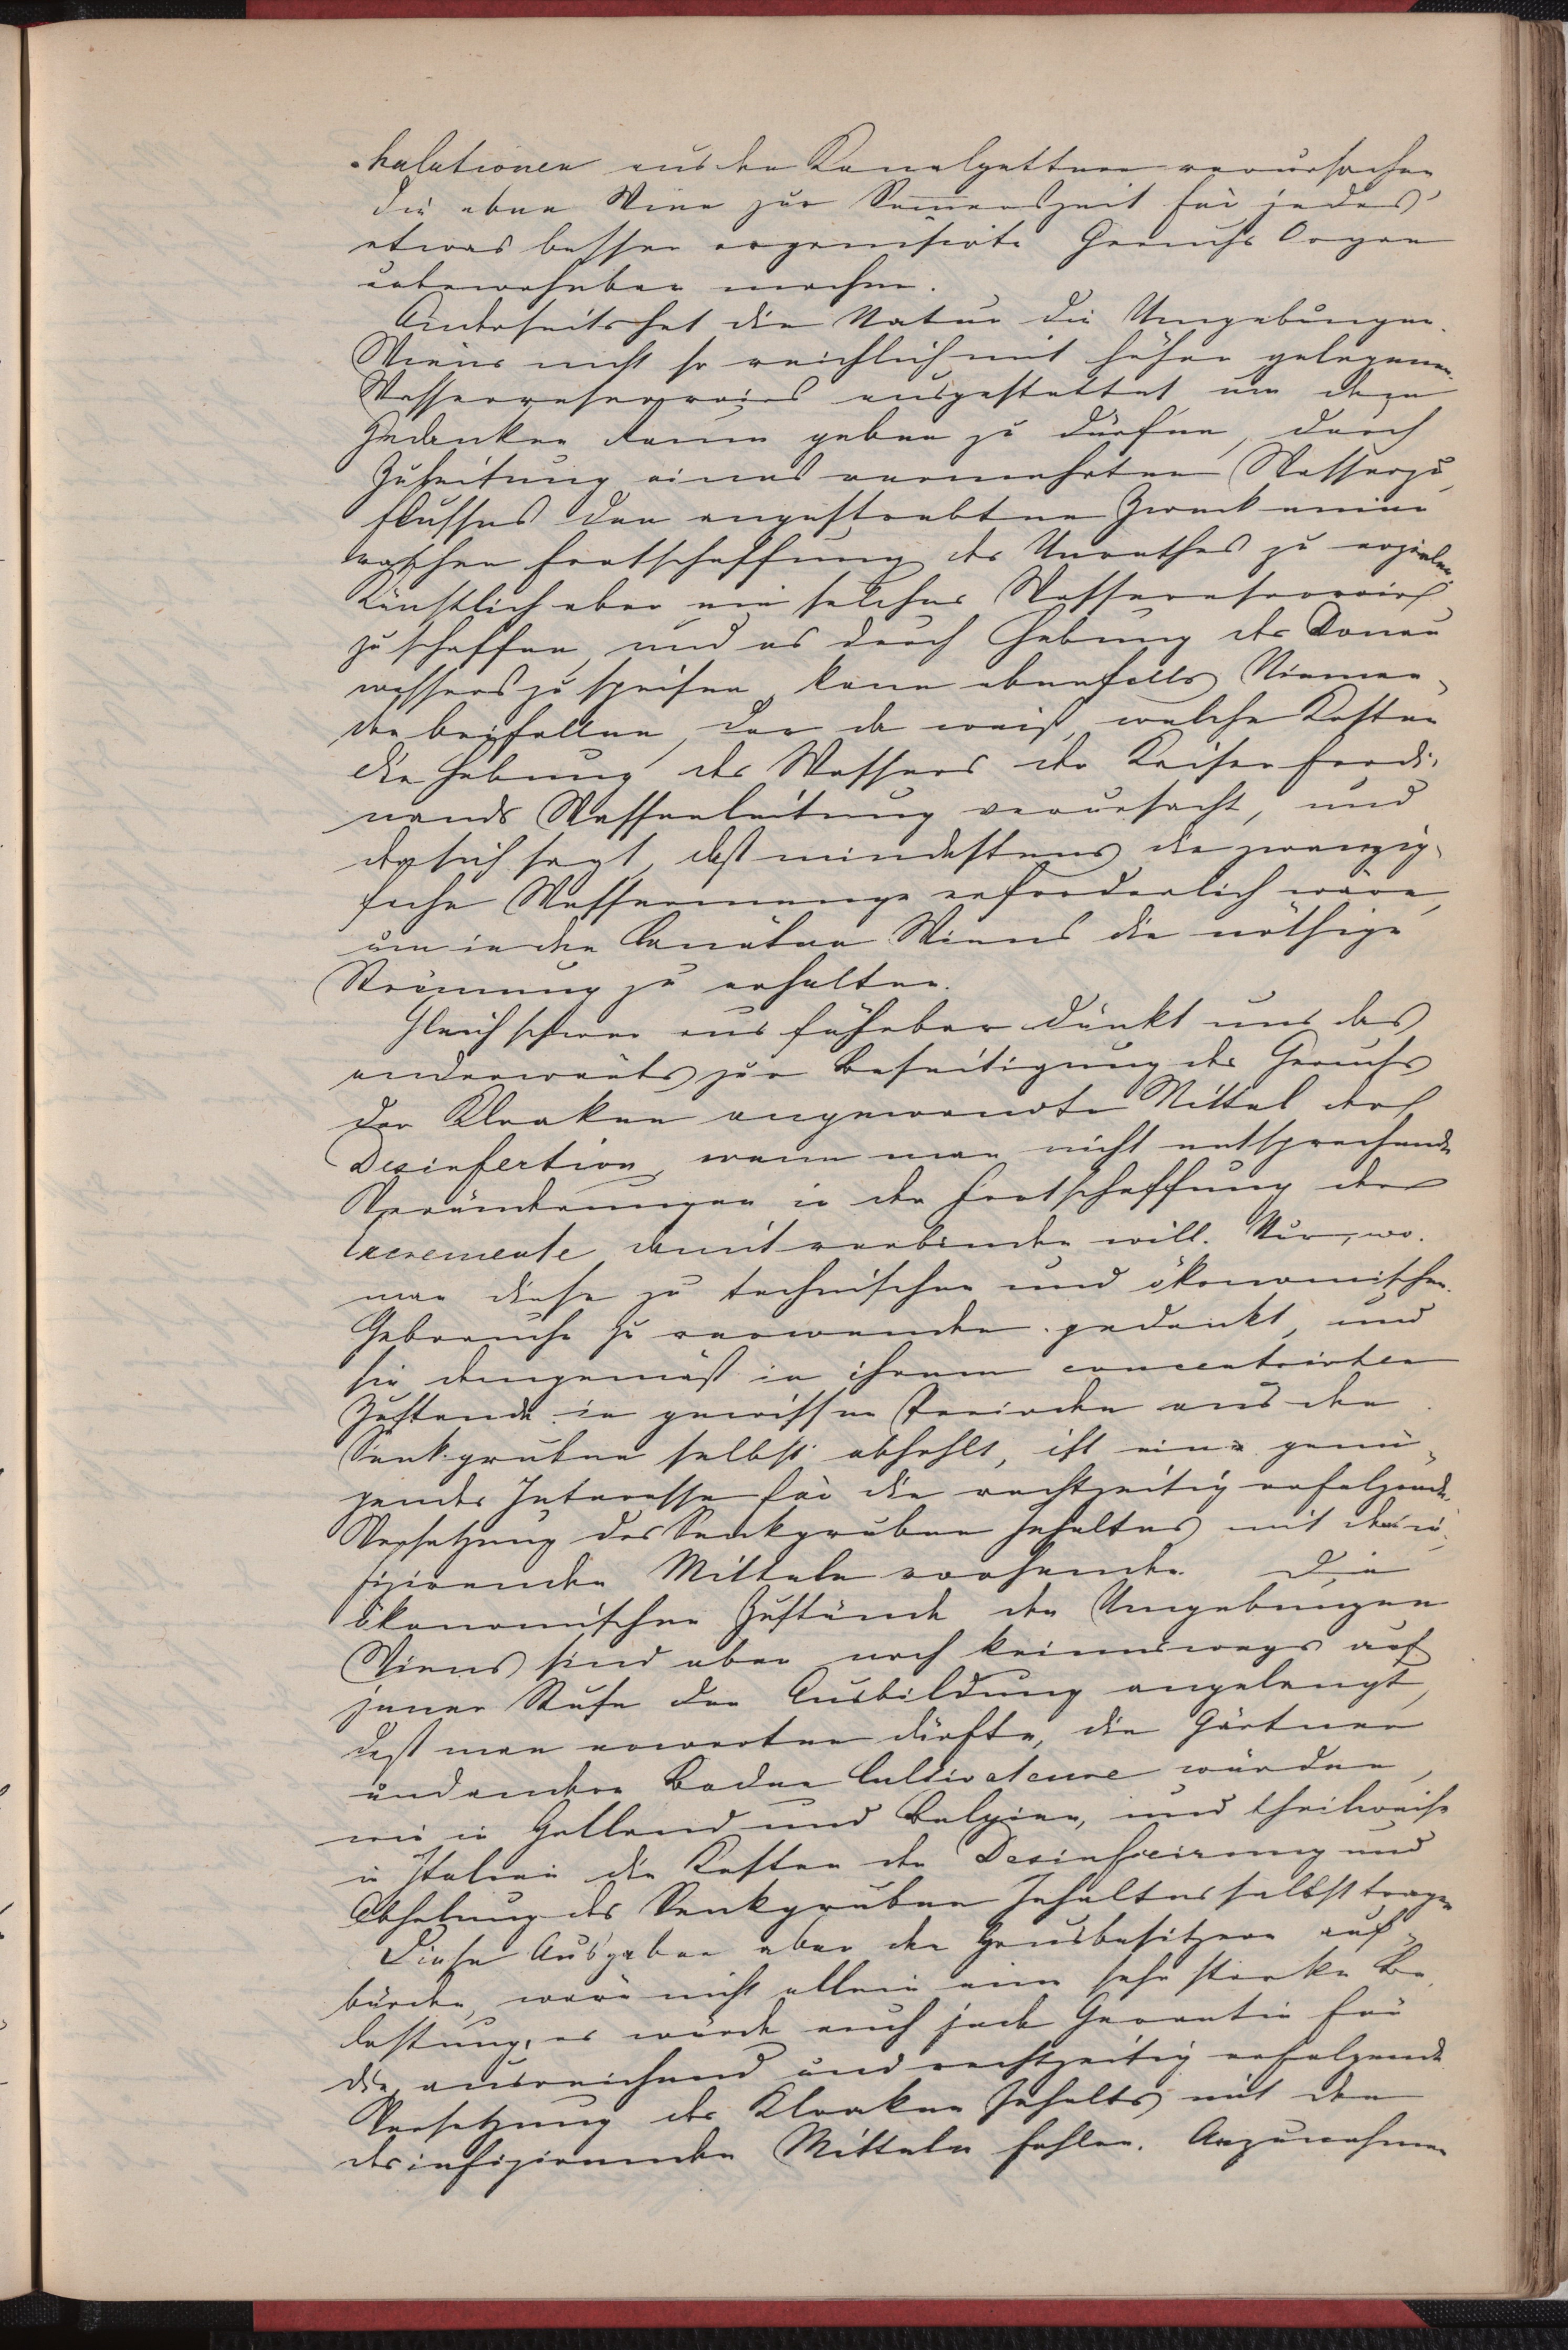 halationen aus den Kanalgettern verursachen
die eben Wien zur Sommerszeit für jedes
etwas besser organisirte Geruchs Organ
unbewohnbar machen.
Anderseits hat die Natur die Umgebungen
Wiens nicht so reichlich mit höher gelegenen
Wasserreservoirs ausgestattet um dem
Gedanken Raum geben zu dürfen, durch
Zuleitung eines vermehrten Wasserzu
flusses den angestrebten Zweck einer
raschen Fortschaffung des Unrathes zu erzielen.
Künstlich aber ein solches Wasserreservoir
zu schaffen und es durch Hebung des Donau
wassers zu speisen, kann ebenfalls Nieman
den beyfallen, der da weiß, welche Kosten
die Hebung des Wassers der Kaiser Ferdi
nands Wasserleitung verursacht, und
der sich sagt, daß mindestens die zwanzig
fache Wassermenge erforderlich wäre,
um in den Canälen Wiens die nöthige
Strömung zu erhalten.
Gleich schwer ausführbar dünkt uns das
anderwärts zur Beseitigung des Geruchs
der Kloaken angewandte Mittel der
Desinfection, wenn man nicht entsprechende
Veränderungen in der Fortschaffung der
Excremente damit verbinden will. Nur, wo
man diese zu technischen und ökonomischen
Gebrauche zu verwenden gedenkt, und
sie demgemäß in ihrem concentrirten
Zustande in gewissen Perioden aus den
Senkgruben selbst abhohlt, ist ein genü
gendes Interesse für die rechtzeitig erfolgende
Versetzung des Senkgruben Inhaltes mit desin
fizirenden Mitteln vorhanden. Die
ökonomischen Zustände der Umgebungen
Wiens sind aber noch keineswegs auf
jener Stufe der Ausbildung angelangt,
daß man erwarten dürfte, die Gärtner
und andere Boden Cultivateure würden,
wie in Holland und Belgien, und theilweise
in Italien die Kosten der Desinficirung und
Abholung des Senkgruben Inhaltes selbst tragen
Diese Ausgaben aber den Hausbesitzern auf
bürden, wäre nicht allein eine sehr starke Be
lastung, es würde auch jede Garantie für
die ausreichend und rechtzeitig erfolgende
Versetzung des Kloaken Inhalts mit den
desinfizirenden Mitteln fehlen. Anzunehmen